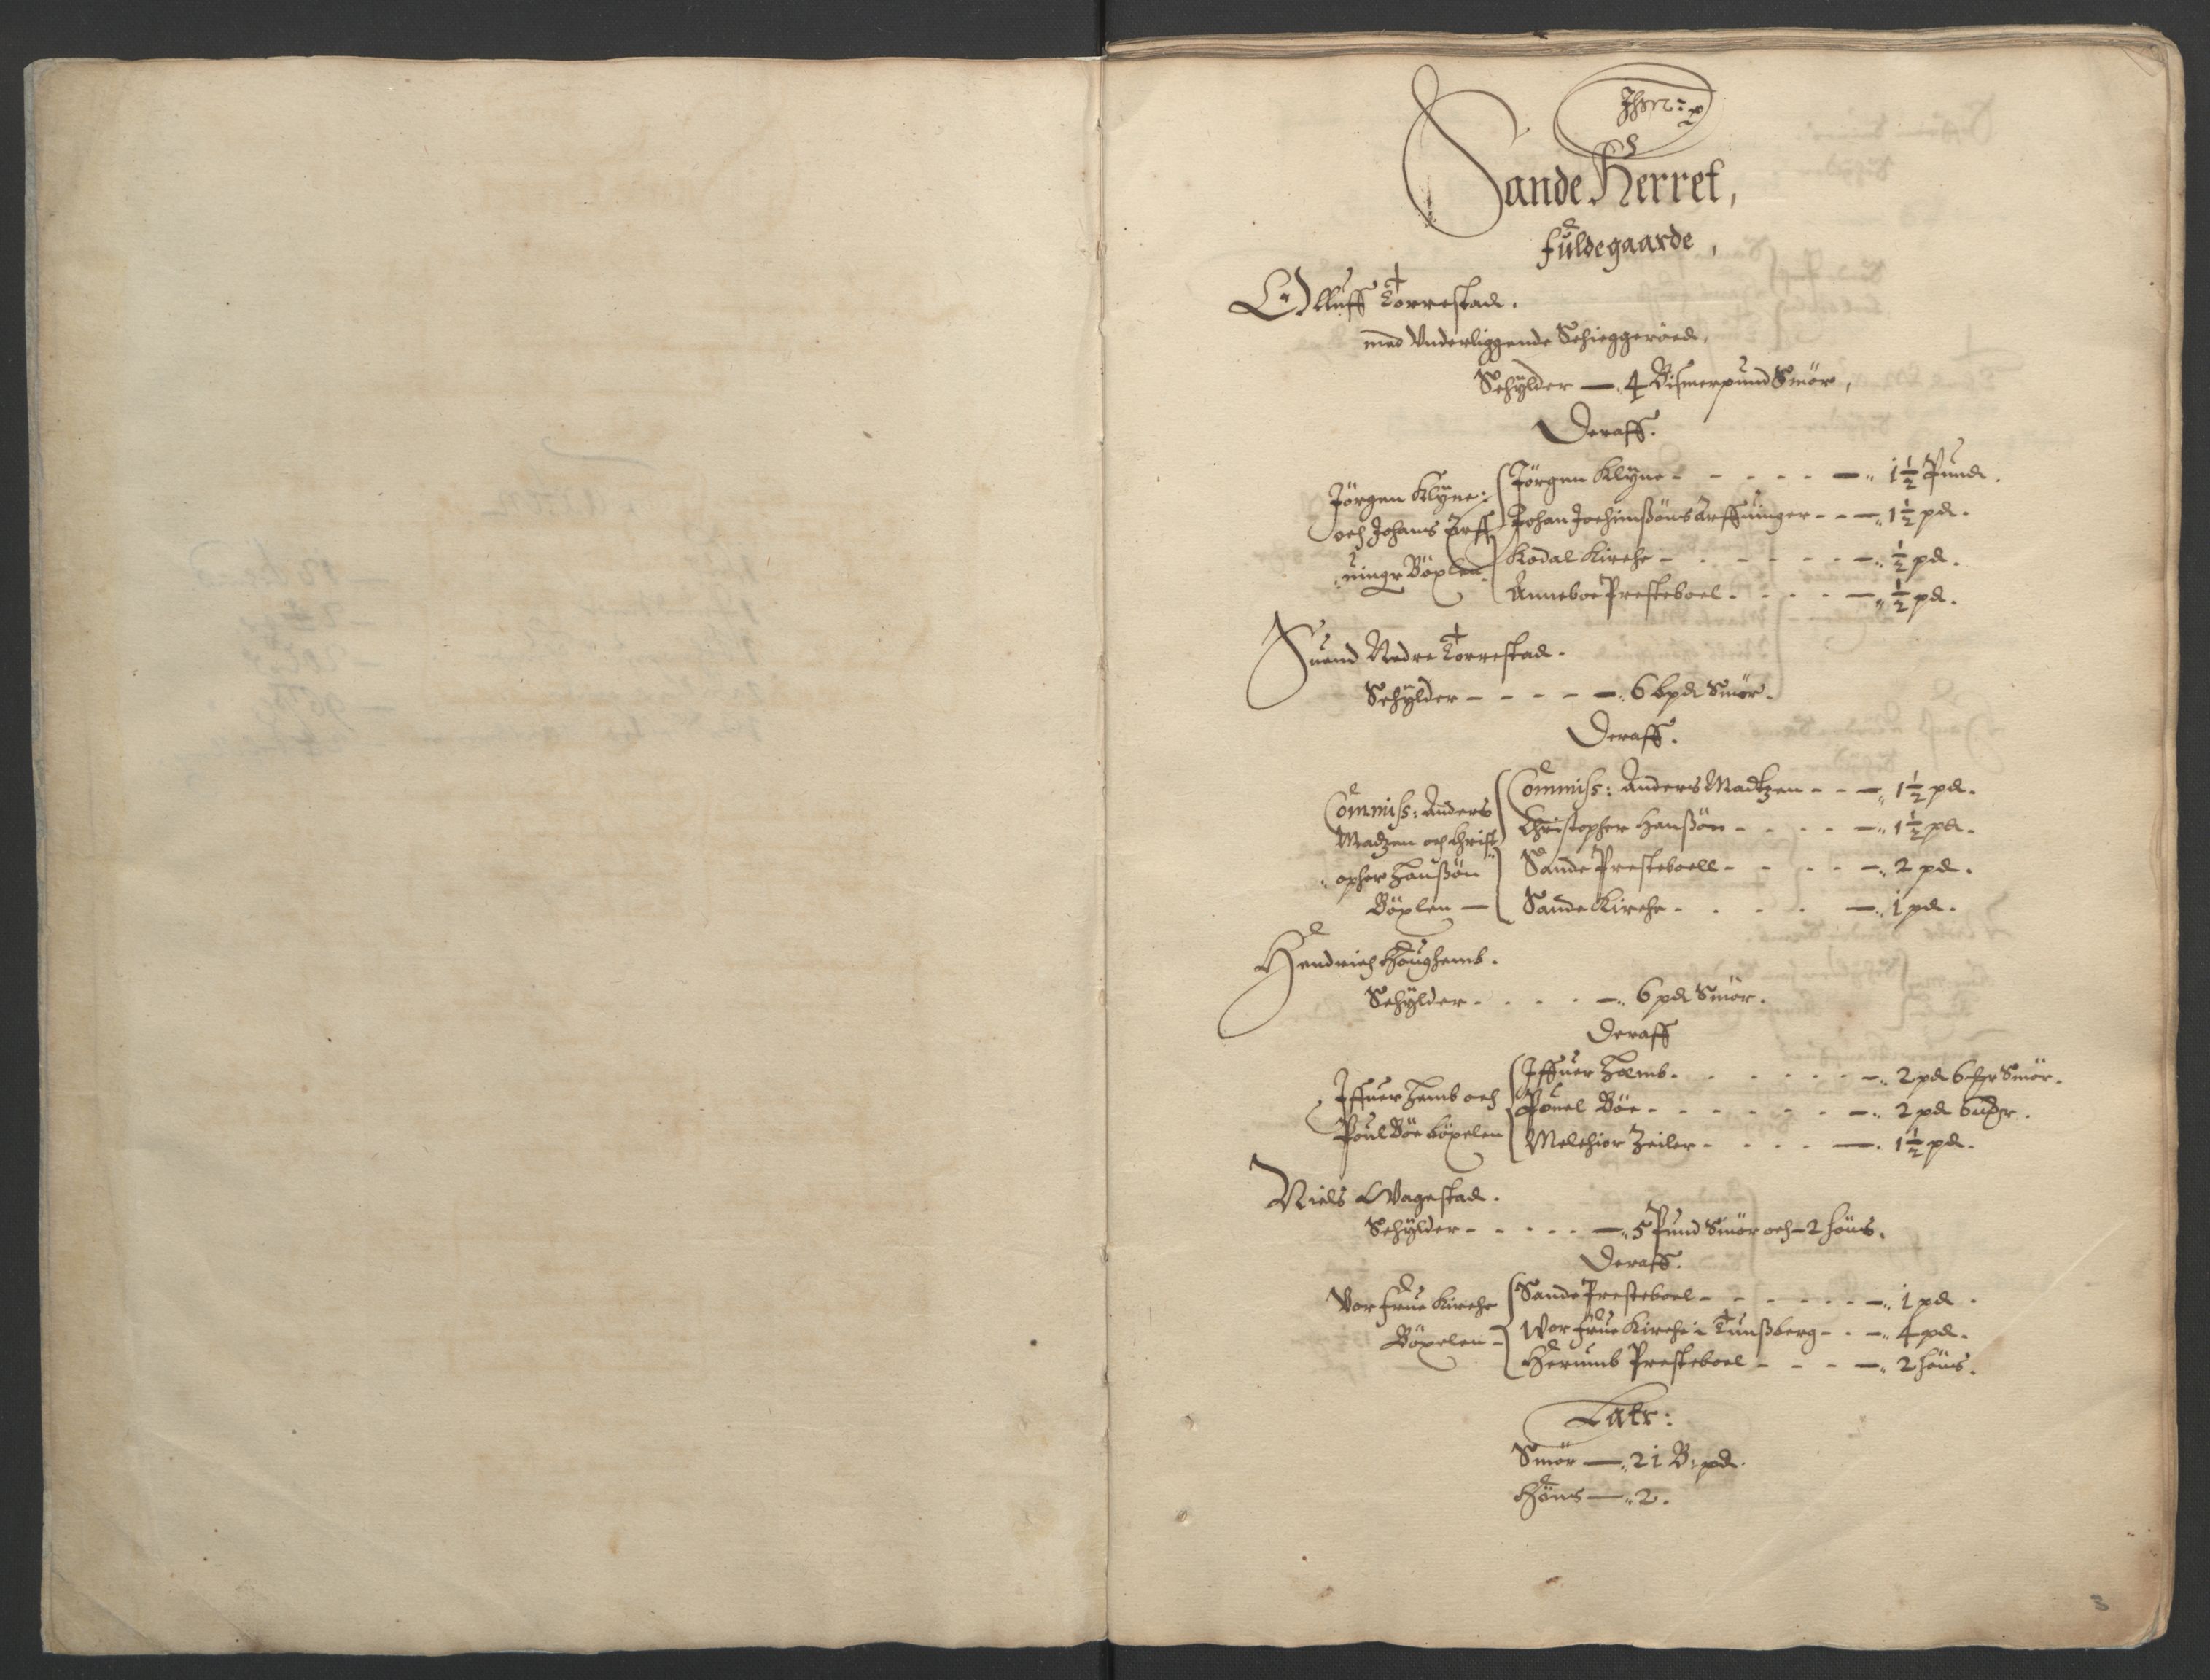 Sande Herret,
fuldegaarde,
Olluff Torrestad.
med Underliggende Schieggeröed,
Schÿlder — 4 Bismerpund Smör,
Deraff.
Jörgen Klÿne: och Johans Arff: :uingr Böxlen.
Jörgen Klÿne - - - - - —„ 1½ Pund.
Johan Jochimßöns Arffuinger - - —„ 1½ pd.
Kodal Kirche - - - - - - —„ ½ pd.
Anneboe Presteboel - - - - —„ ½ pd.
Suend Nedre Torrestad.
Schÿlder - - - - —. 6 bpd Smör.
Deraff.
Commiss: Anders Madzen och Christ: :opher Hanßön Böxlen —
Commiss: Anders Madtzen - - —„ 1½ pd.
Christopher Hanßön - - - - —„ 1½ pd.
Sande Presteboell - - - - —„ 2 pd.
Sande Kirche - - - - —„ 1 pd.
Hendrich Houghemb.
Schÿlder - - - - —„ 6 pd Smör.
Deraff
Iffuer Hemb och Poul Böe böxelen
Iffuer Hemb - - - - - - —„ 2 pd 6 mr Smör.
Pouel Böe - - - - - - - —„ 2 pd 6 mr.
Melchior Zeiler - - - - —. 1½ pd.
Niels Wagestad.
Schÿlder - - - - - —„ 5 Pund Smör och — 2 höns.
Deraff.
Vor frue Kirche Böxelen -
Sande Presteboel - - - - - - —„ 1 pd.
Wor frue Kirche i Tunßberg - - —„ 4 pd.
Herumb Presteboel - - - - —„ 2 höns.
Latr:
Smör —„ 21 B: pd.
Höns —„ 2.
3